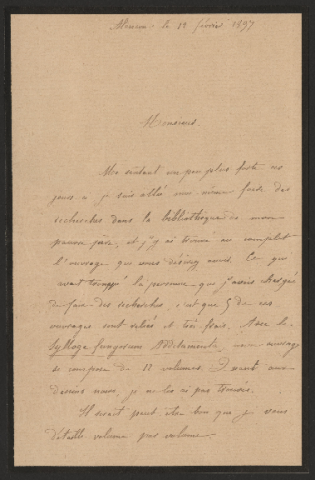 le 12 février 1897
Monsieur.
Me sentant un peu plus forte ces
jours-ci je suis allée moi-même faire des
recherches dans la bibliothèque de mon
pauvre père, et j'y ai trouvé au complet
l'ouvrage que vous désirez avoir. Ce qui
avait trompé la personne que j'avais chargée
de faire des recherches, c'est que 5 de ces
ouvrages sont reliés et très frais. Avec le
Sylloge fungorum Additamenta, cet ouvrage
se compose de 12 volumes. Quant aux
dessins noirs, je ne les ai pas trouvés.
Il serait peut être bon que je vous
détaille volume par volume.